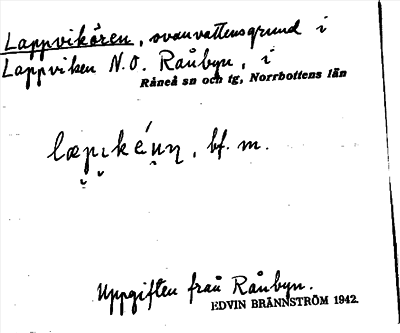 Lappvikören, ovanvattensgrund i
Lappviken N.O. Rånbyn, i
Råneå sn och tg, Norrbottens län
læpıké̗u̗n̗, bf. m.
Uppgiften från Rånbyn.
EDVIN BRÄNNSTRÖM 1942.